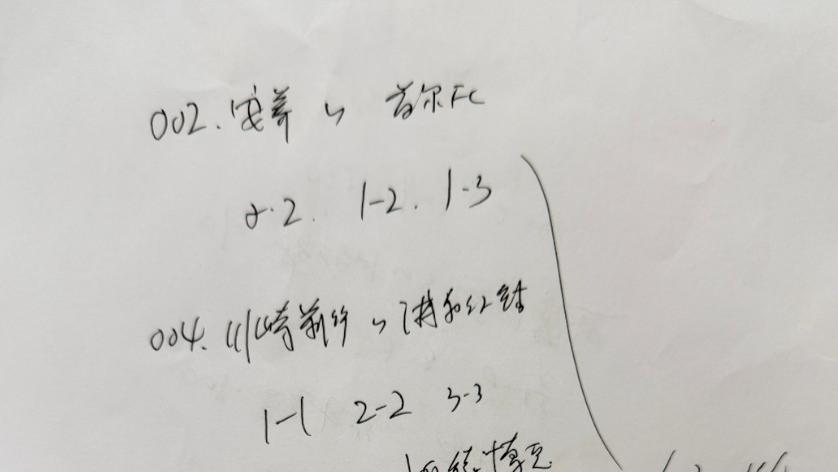 002. 安养 vs 首尔FC
0-2. 1-2. 1-3
004. 川崎前锋 vs 浦和红钻
1-1 2-2 3-3